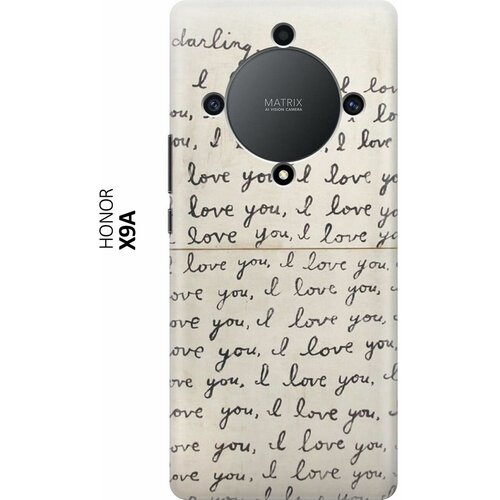 HONOR
X9A
darling,
I I lov
ou, I lo
ou, I I love
love you, I love yo
love you, I love yo
love you, I love yo
MATRIX
AI VISION CAMERA
I love you, I love you,
ove you, I love you,
ove you, I love you,
ove you, I love you,
ove you, I love you,
ove you, I love you,
ove you, I love you,
love you, I love you